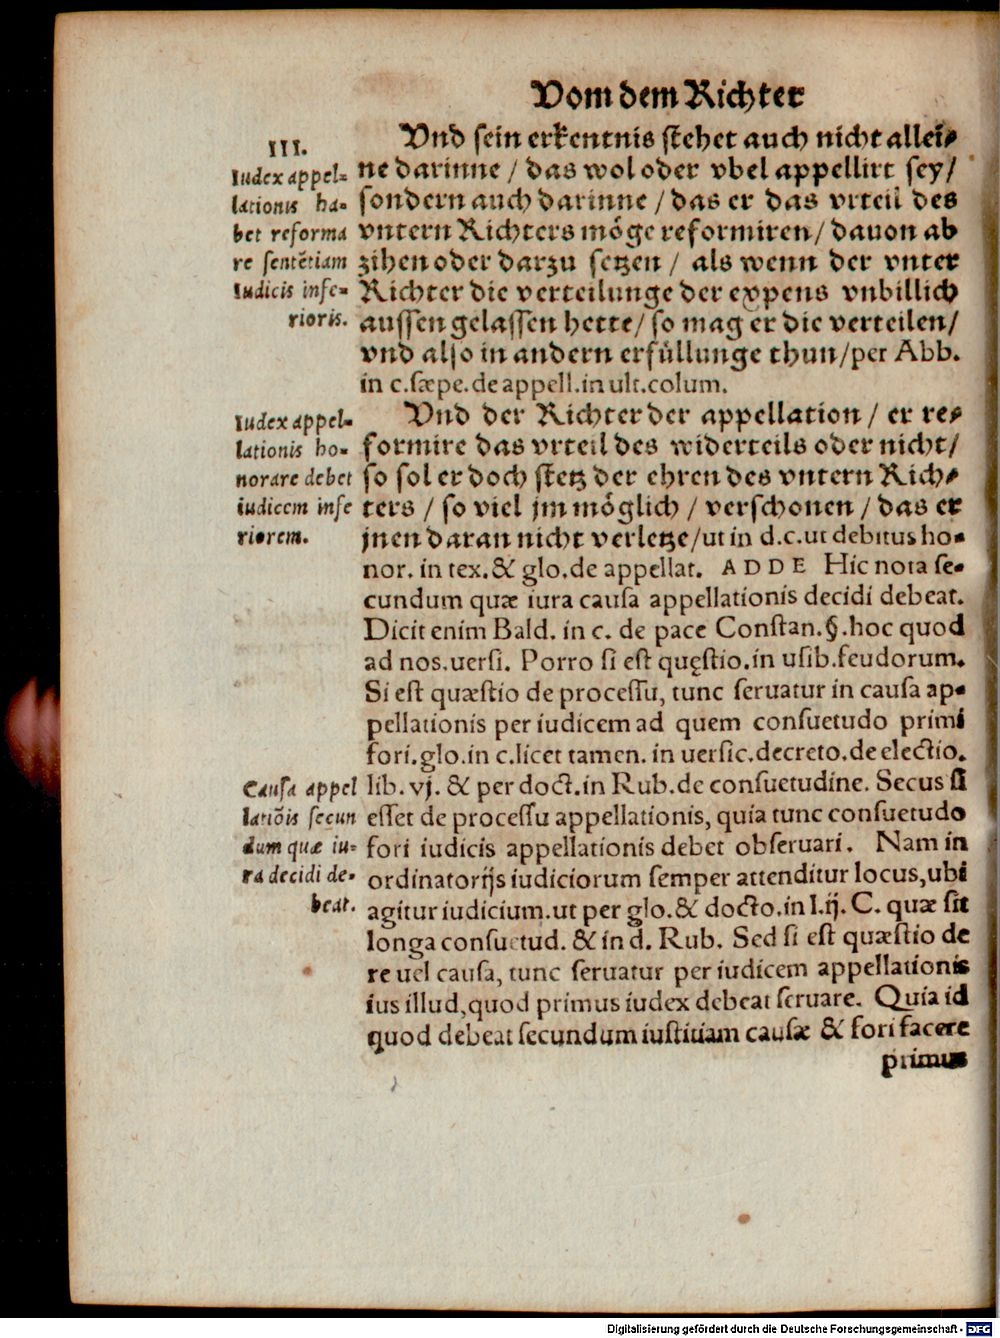 Vom dem Richter
III.
Iudex appel-
lationis ha-
bet reforma
re sentẽtiam
Iudicis infe-
rioris.
Vnd sein erkentnis stehet auch nicht allei-
ne darinne / das wol oder vbel appellirt sey /
sondern auch darinne / das er das vrteil des
vntern Richters möge reformiren / dauon ab
zihen oder darzu setzen / als wenn der vnter
Richter die verteilunge der expens vnbillich
aussen gelassen hette / so mag er die verteilen /
vnd also in andern erfüllunge thun / per Abb.
in c. sæpe. de appell. in ult. colum.
Iudex appel-
lationis ho-
norare debet
iudicem infe
riorem.
Vnd der Richter der appellation / er re-
formire das vrteil des widerteils oder nicht /
so sol er doch stetz der ehren des vntern Rich-
ters / so viel jm möglich / verschonen / das er
jnen daran nicht verletze / ut in d. c. ut debitus ho-
nor. in tex. & glo. de appellat. ADDE Hic nota se-
cundum quæ iura causa appellationis decidi debeat.
Dicit enim Bald. in c. de pace Constan. §. hoc quod
ad nos. uersi. Porro si est quęstio. in usib. feudorum.
Si est quæstio de processu, tunc seruatur in causa ap-
pellationis per iudicem ad quem consuetudo primi
fori. glo. in c. licet tamen. in uersic. decreto. de electio.
Causa appel
latiõis secun
dum quæ iu-
ra decidi de-
beat.
lib. vj. & per doct. in Rub. de consuetudine. Secus si
esset de processu appellationis, quia tunc consuetudo
fori iudicis appellationis debet obseruari. Nam in
ordinatorijs iudiciorum semper attenditur locus, ubi
agitur iudicium. ut per glo. & docto. in l. ij. C. quæ sit
longa consuetud. & in d. Rub. Sed si est quæstio de
re uel causa, tunc seruatur per iudicem appellationis
ius illud, quod primus iudex debeat seruare. Quia id
quod debeat secundum iustitiam causæ & fori facere
primus
Digitalisierung gefördert durch die Deutsche Forschungsgemeinschaft - DFG